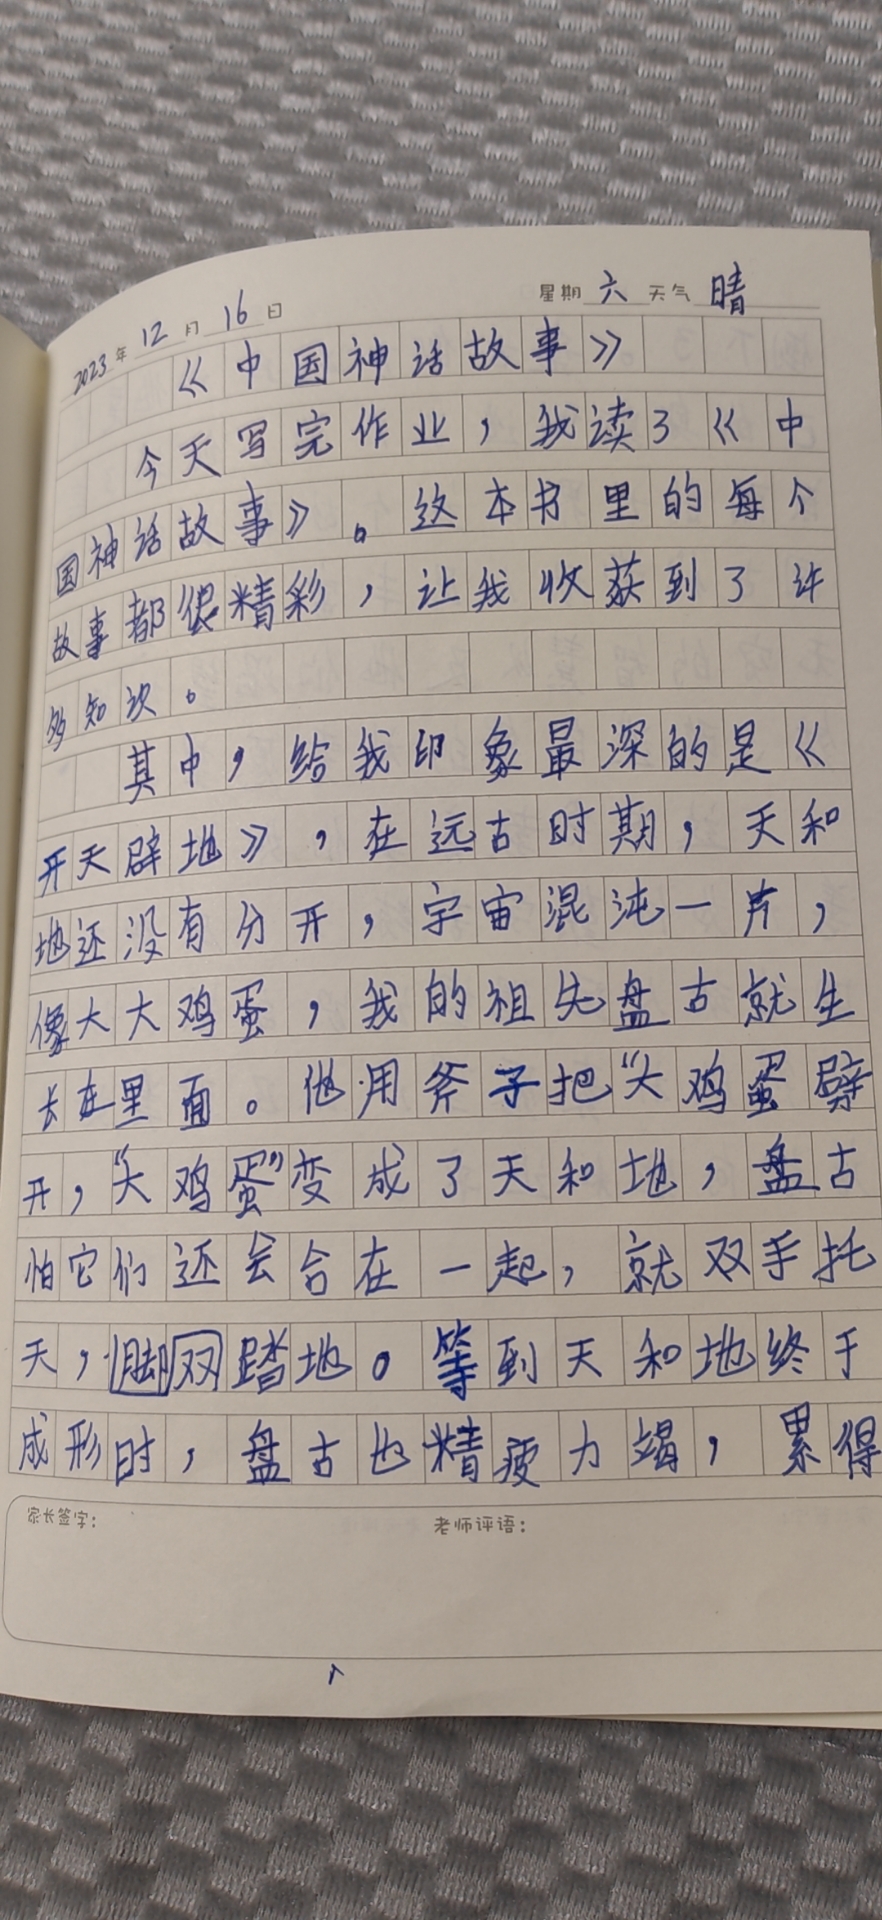 2023年 12月 16日 星期 六 天气 晴
《中国神话故事》
今天写完作业，我读了《中
国神话故事》。这本书里的每个
故事都很精彩，让我收获到了许
多知次。
其中，给我印象最深的是《
开天辟地》，在远古时期，天和
地还没有分开，宇宙混沌一片，
像大大鸡蛋，我的祖先盘古就生
长在里面。他用斧子把“大鸡蛋劈
开，“大鸡蛋”变成了天和地，盘古
怕它们还会合在一起，就双手托
天，脚双踏地。等到天和地终于
成形时，盘古也精疲力竭，累得
家长签字： 老师评语：